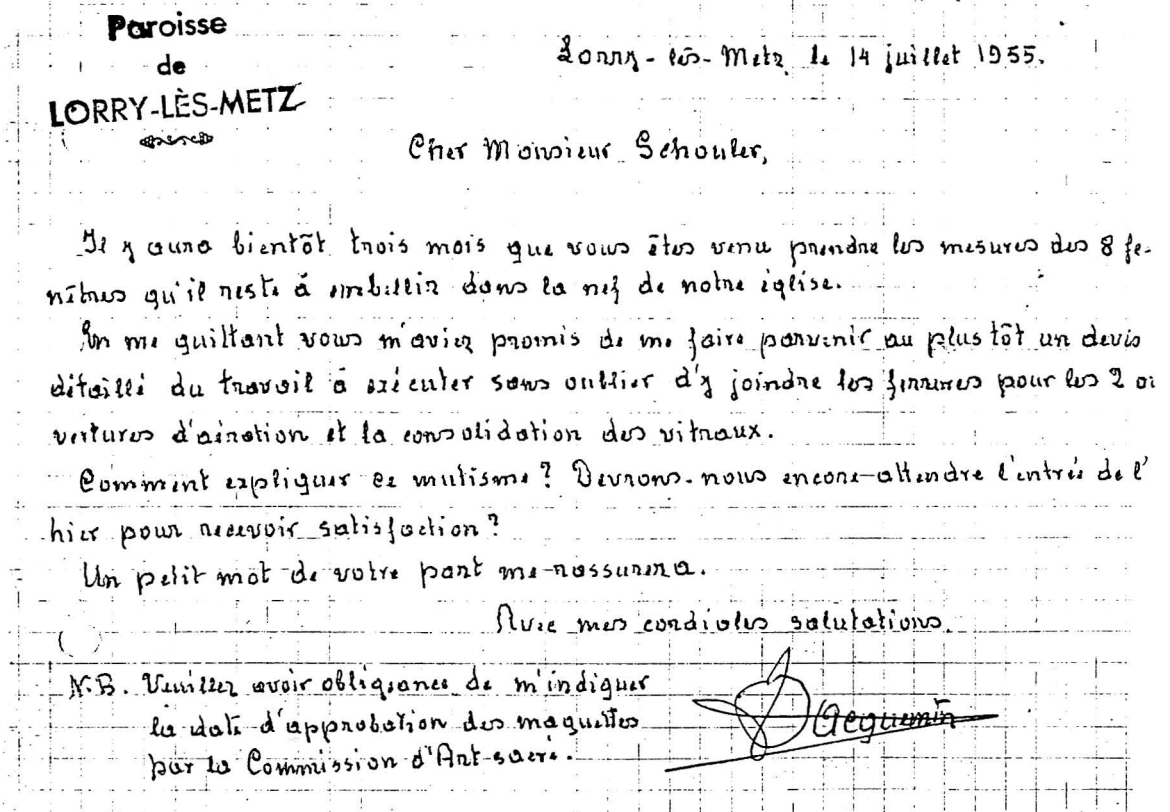 Paroisse
de
LORRY-LÈS-METZ
Lorry-lès-Metz le 14 juillet 1955.
Cher Monsieur Schouler,
Il y aura bientôt trois mois que vous êtes venu prendre les mesures des 8 fe-
nêtres qu'il reste à embellir dans la nef de notre église.
En me quittant vous m'aviez promis de me faire parvenir au plus tôt un devis
détaillé du travail à exécuter sans oublier d'y joindre les ferrures pour les 2 ou
vertures d'aération et la consolidation des vitraux.
Comment expliquer ce mutisme? Devrons-nous encore attendre l'entrée de l'
hier pour recevoir satisfaction?
Un petit mot de votre part me rassurera.
Avec mes cordiales salutations.
N.B. Veuillez avoir obligeance de m'indiquer
la date d'approbation des maquettes
par la Commission d'Art-sacré.
Jacquemin